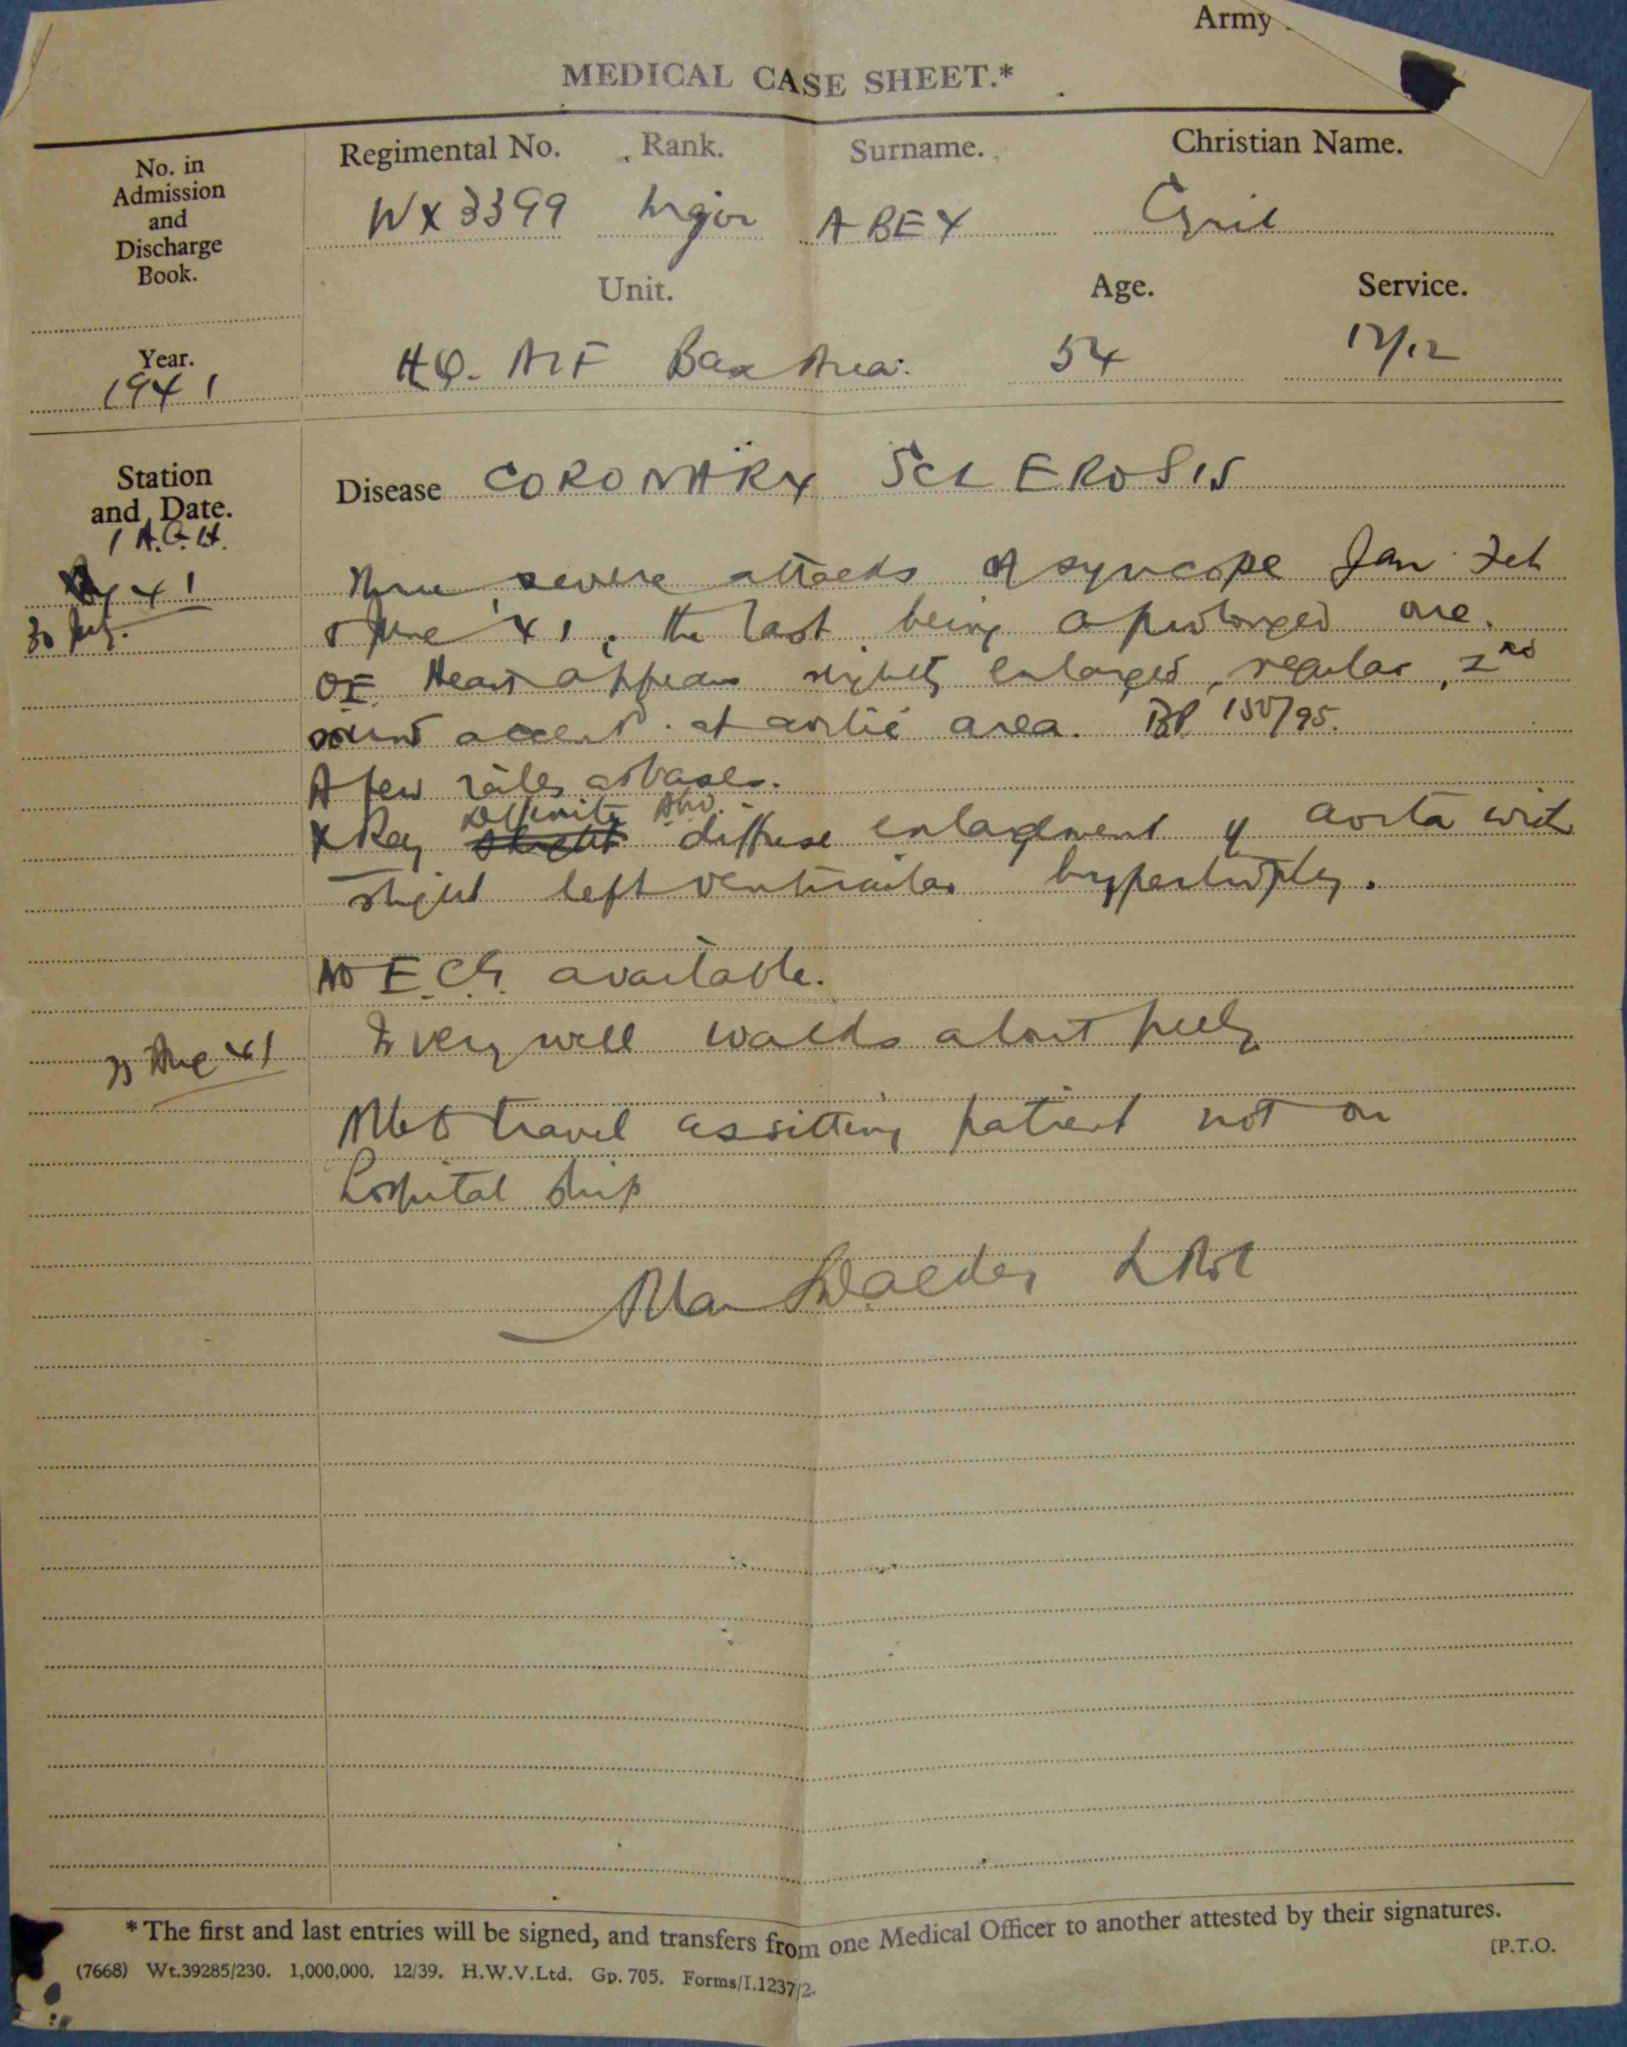 Army
MEDICAL CASE SHEET.*
No. in Admission and Discharge Book.
Regimental No. Rank. Surname. Christian Name.
WX3399 Major ABEY Cyril
Unit. Age. Service.
H.Q. AIF Base Area. 54 12/12
Year.
1941
Station and Date.
Disease CORONARY SCLEROSIS
1 A.G.H.
41
30 July.
Three severe attacks of syncope Jan Feb
& June '41, the last being a prolonged one.
OE Heart appears slightly enlarged, regular, 2nd
sound accent. at aortic area. BP 150/95.
A few râles at bases.
X Ray Definite diffuse enlargement of aorta with
slight left ventricular hypertrophy.
NO E.C.G. available.
Aug 41
Is very well walks about freely
Able to travel as sitting patient not on
hospital ship
* The first and last entries will be signed, and transfers from one Medical Officer to another attested by their signatures.
[P.T.O.
(7668) Wt.39285/230. 1,000,000. 12/39. H.W.V.Ltd. Gp. 705. Forms/I.1237/2.